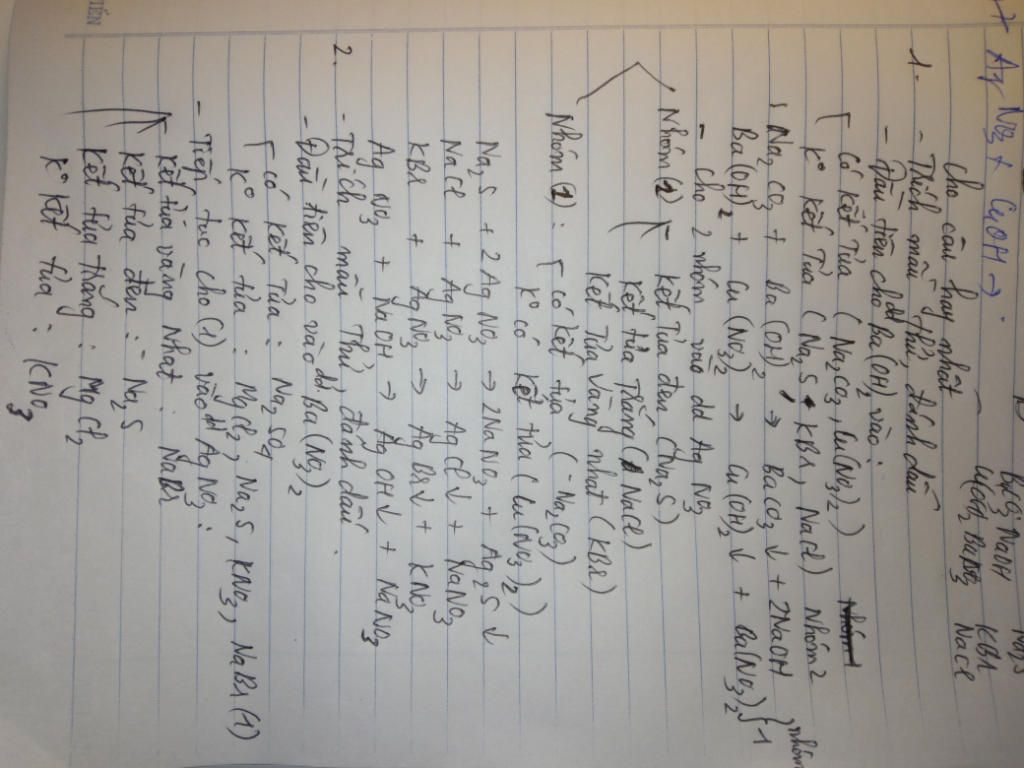 BaCl₂ NaOH KBr NaCl
Ag NO₃ + CuOH →
Cho câu hay nhất
1. - Thích mẫu thử, đánh dấu
- Đầu tiên cho dd Ba(OH)₂ vào:
Có kết tủa (Na₂CO₃, Cu(NO₃)₂)
K° kết tủa (Na₂S, KBr, NaCl) Nhóm 2
Na₂CO₃ + Ba(OH)₂ → BaCO₃↓ + 2NaOH
Ba(OH)₂ + Cu(NO₃)₂ → Cu(OH)₂↓ + Ba(NO₃)₂ } nhóm 1
- Cho 2 nhóm vào dd AgNO₃
Nhóm (2) kết tủa đen (Na₂S)
kết tủa trắng (NaCl)
kết tủa vàng nhạt (KBr)
Nhóm (1): có kết tủa (Na₂CO₃)
K° có kết tủa (Cu(NO₃)₂)
Na₂S + 2AgNO₃ → 2NaNO₃ + Ag₂S↓
NaCl + AgNO₃ → AgCl↓ + NaNO₃
KBr + AgNO₃ → AgBr↓ + KNO₃
AgNO₃ + NaOH → AgOH↓ + NaNO₃
2. - Thích mẫu thử, đánh dấu.
- Đầu tiên cho vào dd Ba(NO₃)₂
có kết tủa: Na₂SO₄
K° kết tủa: MgCl₂, Na₂S, KNO₃, NaBr (1)
- Tiếp tục cho (1) vào dd AgNO₃:
kết tủa vàng nhạt: NaBr
kết tủa đen: Na₂S
kết tủa trắng: MgCl₂
K° kết tủa: KNO₃